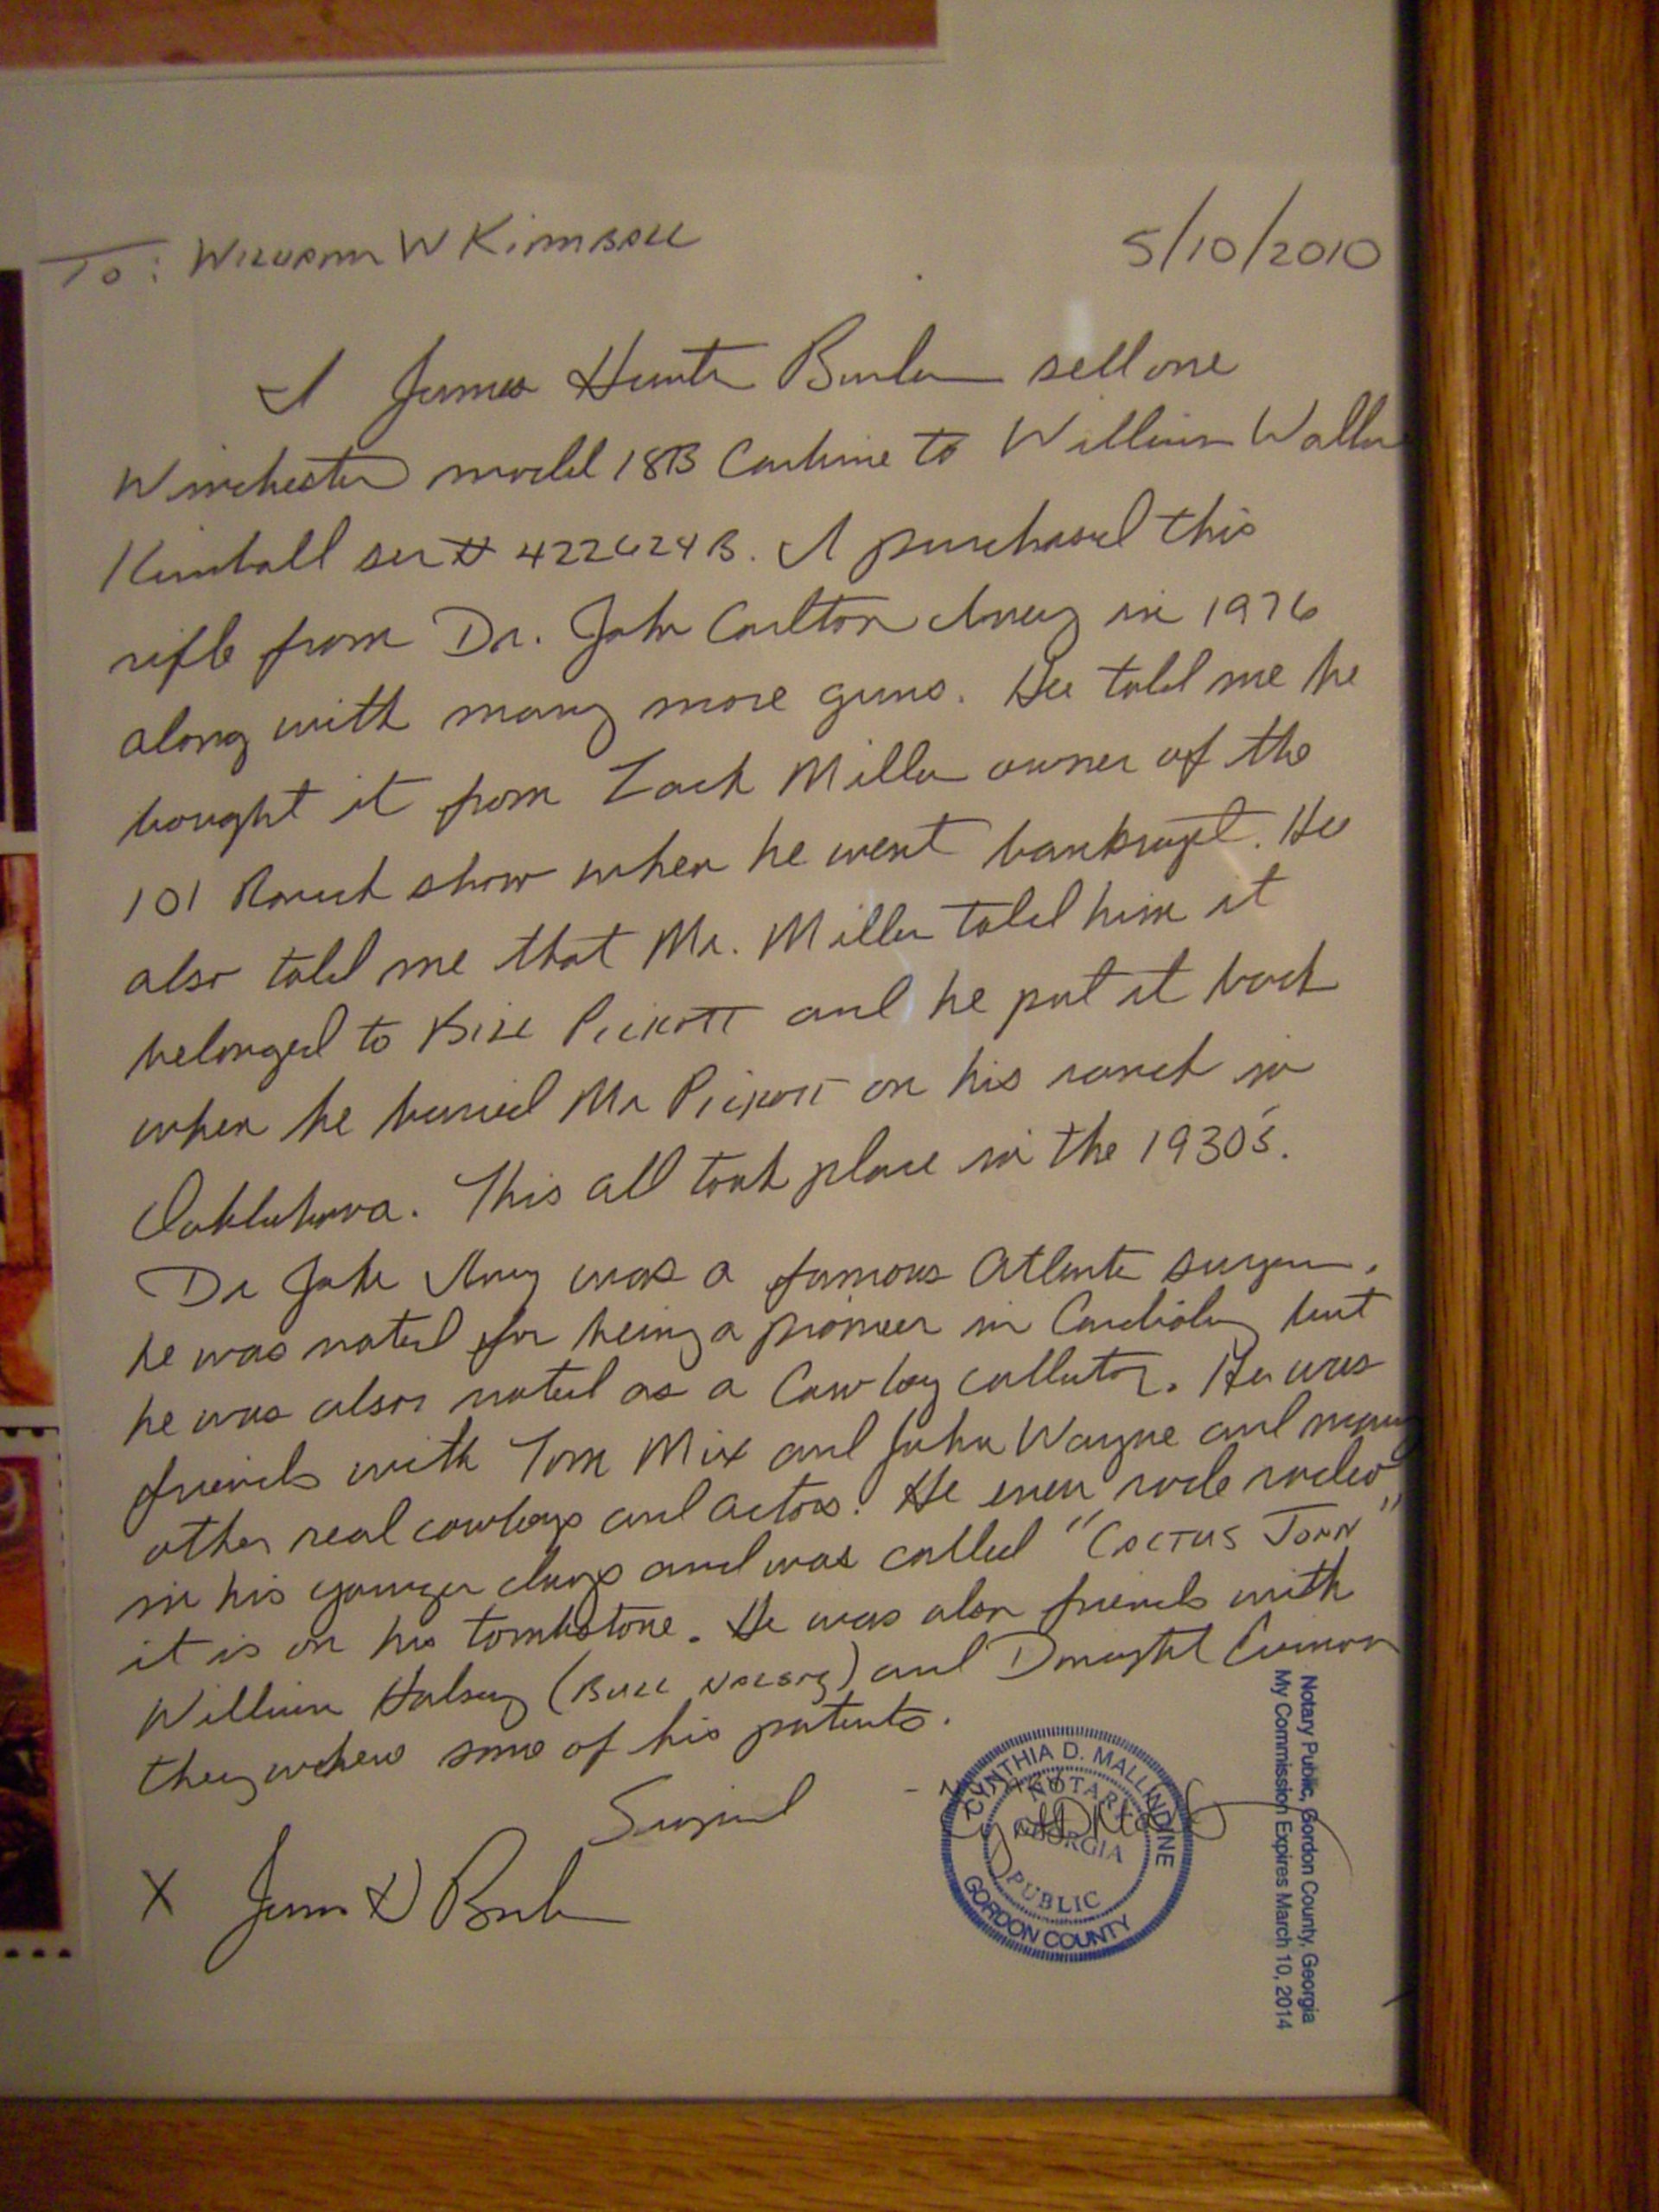 To: William W Kimball 5/10/2010
I James Hunter sell one
Winchester model 1873 Carbine to William Waller
Kimball ser # 422624B. I purchased this
rifle from Dr. John Carlton Ivey in 1976
along with many more guns. He told me he
bought it from Zack Miller owner of the
101 Ranch show when he went bankrupt. He
also told me that Mr. Miller told him it
belonged to Bill Pickett and he put it back
when he buried Mr Pickett on his ranch in
This all took place in the 1930's.
Dr John Ivey was a famous Atlanta surgeon.
he was noted for being a pioneer in Cardiology but
he was also noted as a Cowboy collector. He was
friends with Tom Mix and John Wayne and many
other real cowboys and actors. He even rode rodeo
in his younger days and was called "Cactus John"
it is on his tombstone. He was also friends with
William Halsey (Bull Halsey) and
they where some of his patients.
Signed
X James H
CYNTHIA D. MALLINDINE
NOTARY
GEORGIA
PUBLIC
GORDON COUNTY
Notary Public, Gordon County, Georgia
My Commission Expires March 10, 2014